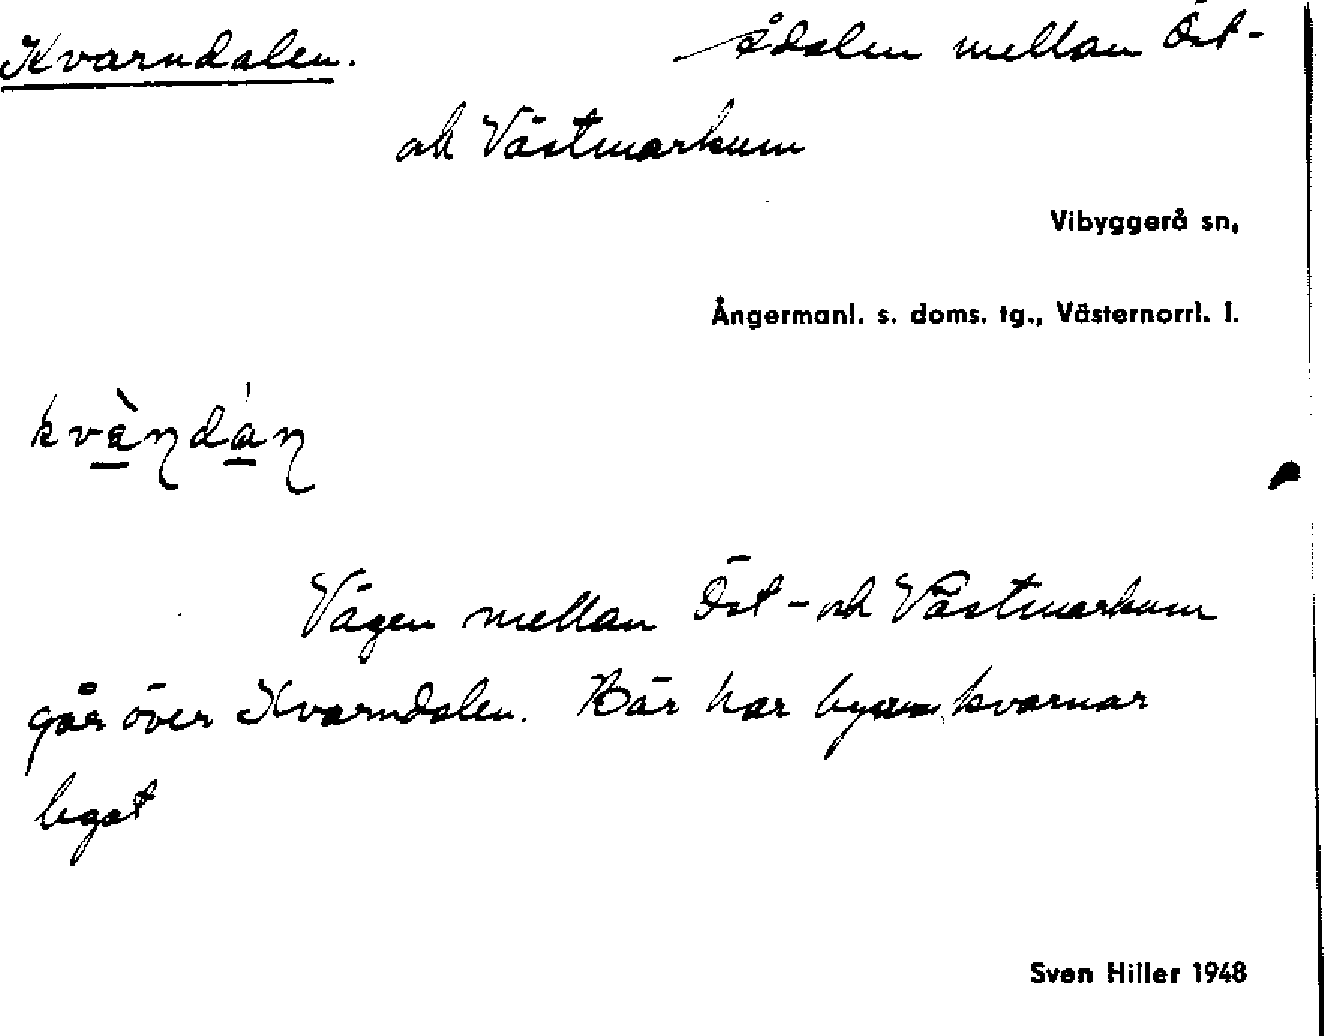 Kvarndalen. ådalen mellan Öst-
och Västmarkum
Vibyggerå sn,
Ångermanl. s. doms. tg., Västernorrl. l.
kvàṇdáṇ
Vägen mellan Öst- och Västmarkum
går över Kvarndalen. Där har byarnas kvarnar
legat
Sven Hiller 1948